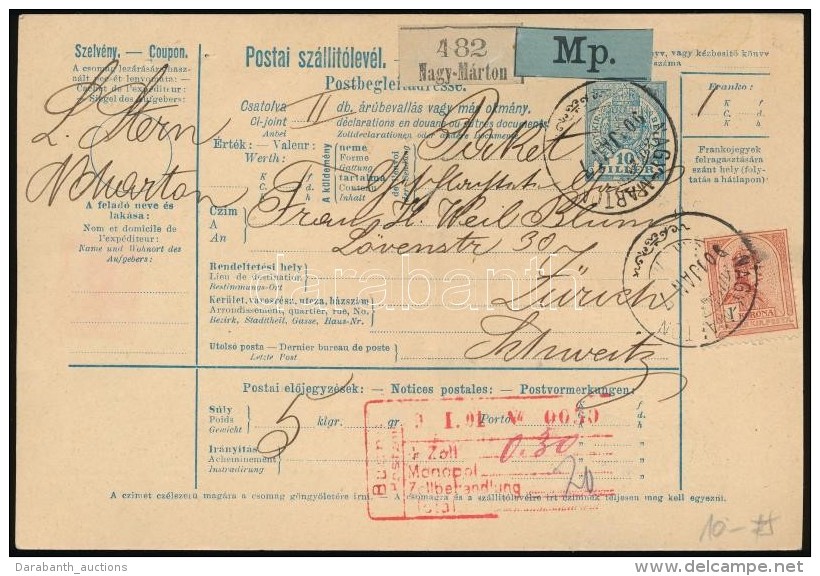 Szelvény. — Coupon.
Postai szállítólevél. —
482
Nagy-Márton
Mp.
vagy kézbesitő könyv
száma
Postbegleitadresse.
Siegel des Aufgebers:
Cachet de l'expéditeur:
Csatolva II db. árúbevallás vagy más okmány.
Ci-joint déclarations en douane ou autres documents
Anbei Zolldeclarationen oder andere Documente
L. Stern
N Marton
Érték: — Valeur:
Werth:
K f
C. c.
K. h.
A küldemény
neme
Forme
Gattung
tartalma
Contenu
Inhalt
Franko:
1
K f
C. c.
K h
Frankojegyek
felragasztására
szánt hely (foly-
tatás a hátlapon)
10
FILLÉR
A feladó neve és
lakása:
Nom et domicile de
l'expéditeur:
Name und Wohnort des
Aufgebers:
Czim
A
An
Frau H. Weil Blum
Lövenstr 30
Zürich
Schweitz
Rendeltetési hely
Lieu de destination
Bestimmungs-Ort
Kerület, városrész, utcza, házszám
Arrondissement, quartier, rue, No.
Bezirk, Stadttheil, Gasse, Haus-Nr.
Utolsó posta — Dernier bureau de poste
Letzte Post
darabanth
NAGY
TON
1
KORONA
Postai előjegyzések: — Notices postales: — Postvormerkungen:
Súly
Poids
Gewicht
5 klgr. gr.
Porto
Irányitás
Acheminement
Instradirung
Zoll 0.30
Monopol
Zollbehandlung
Total
20
A czimet czélszerü magára a csomag göngyöletére irni. — A csomagra és a szállitólevélre irt czimnek teljesen meg kell egyezni.
10-
Darabanth_auctions
delcampe.net